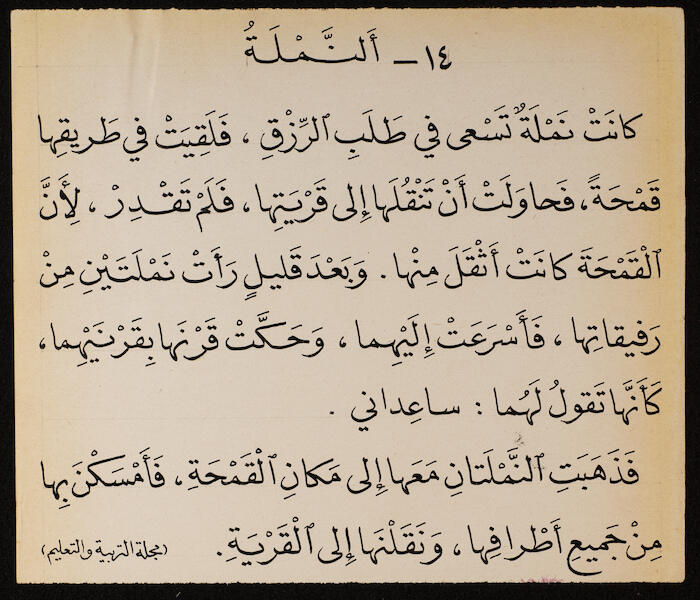 ١٤ – أَلنَّمْلَةُ
كانَتْ نَمْلَةٌ تَسْعى في طَلَبِ الرِّزْقِ ، فَلَقِيَتْ في طَريقِها
قَمْحَةً ، فَحاوَلَتْ أَنْ تَنْقُلَها إِلى قَرْيَتِها ، فَلَمْ تَقْدِرْ ، لِأَنَّ
الْقَمْحَةَ كانَتْ أَثْقَلَ مِنْها . وَبَعْدَ قَليلٍ رَأَتْ نَمْلَتَيْنِ مِنْ
رَفيقاتِها ، فَأَسْرَعَتْ إِلَيْهِما ، وَحَكَّتْ قَرْنَها بِقَرْنَيْهِما ،
كَأَنَّها تَقولُ لَهُما : ساعِداني .
فَذَهَبَتِ النَّمْلَتانِ مَعَها إِلى مَكانِ الْقَمْحَةِ ، فَأَمْسَكْنَ بِها
مِنْ جَميعِ أَطْرافِها ، وَنَقَلْنَها إِلى الْقَرْيَةِ . (مجلة التربية والتعليم)